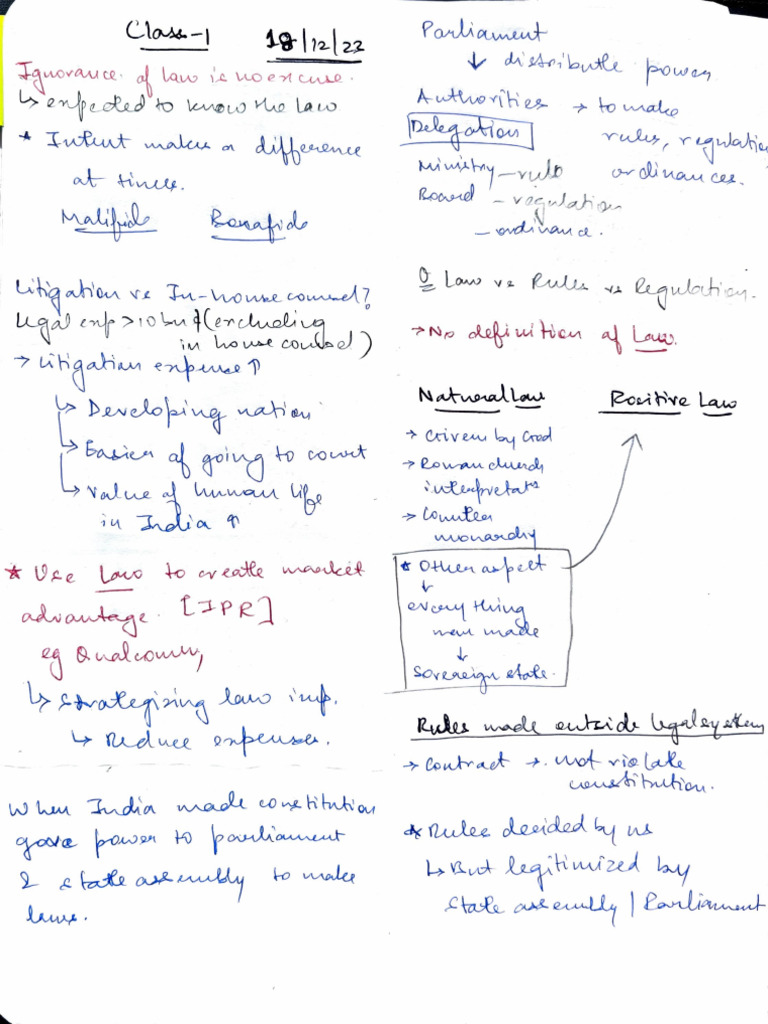 Class-1 18/12/22
Ignorance of law is no excuse.
↳ expected to know the law
* Intent makes a difference
at times.
Malifide Bonafide
Litigation vs In-house counsel?
Legal exp > 10 bn $ (excluding
in house counsel)
→ Litigation expense ↑
↳ Developing nation
↳ Easier of going to court
↳ Value of human life
in India ↑
* Use Law to create market
advantage. [IPR]
eg Qualcomm,
↳ Strategizing law imp.
↳ Reduce expenses.
When India made constitution
gave power to parliament
& state assembly to make
laws.
Parliament
↓ distribute power
Authorities → to make
Delegation rules, regulation
Ministry - rule ordinances.
Board - regulation
- ordinance.
Q Law vs Rules vs Regulation.
→ No definition of Law.
Natural Law Positive Law
→ Given by God
→ Roman church
interpretats
→ Counter
monarchy
* Other aspect
↓
everything
man made
↓
Sovereign state.
Rules made outside legal system
→ Contract → not violate
constitution.
* Rules decided by us
↳ But legitimized by
State assembly / Parliament